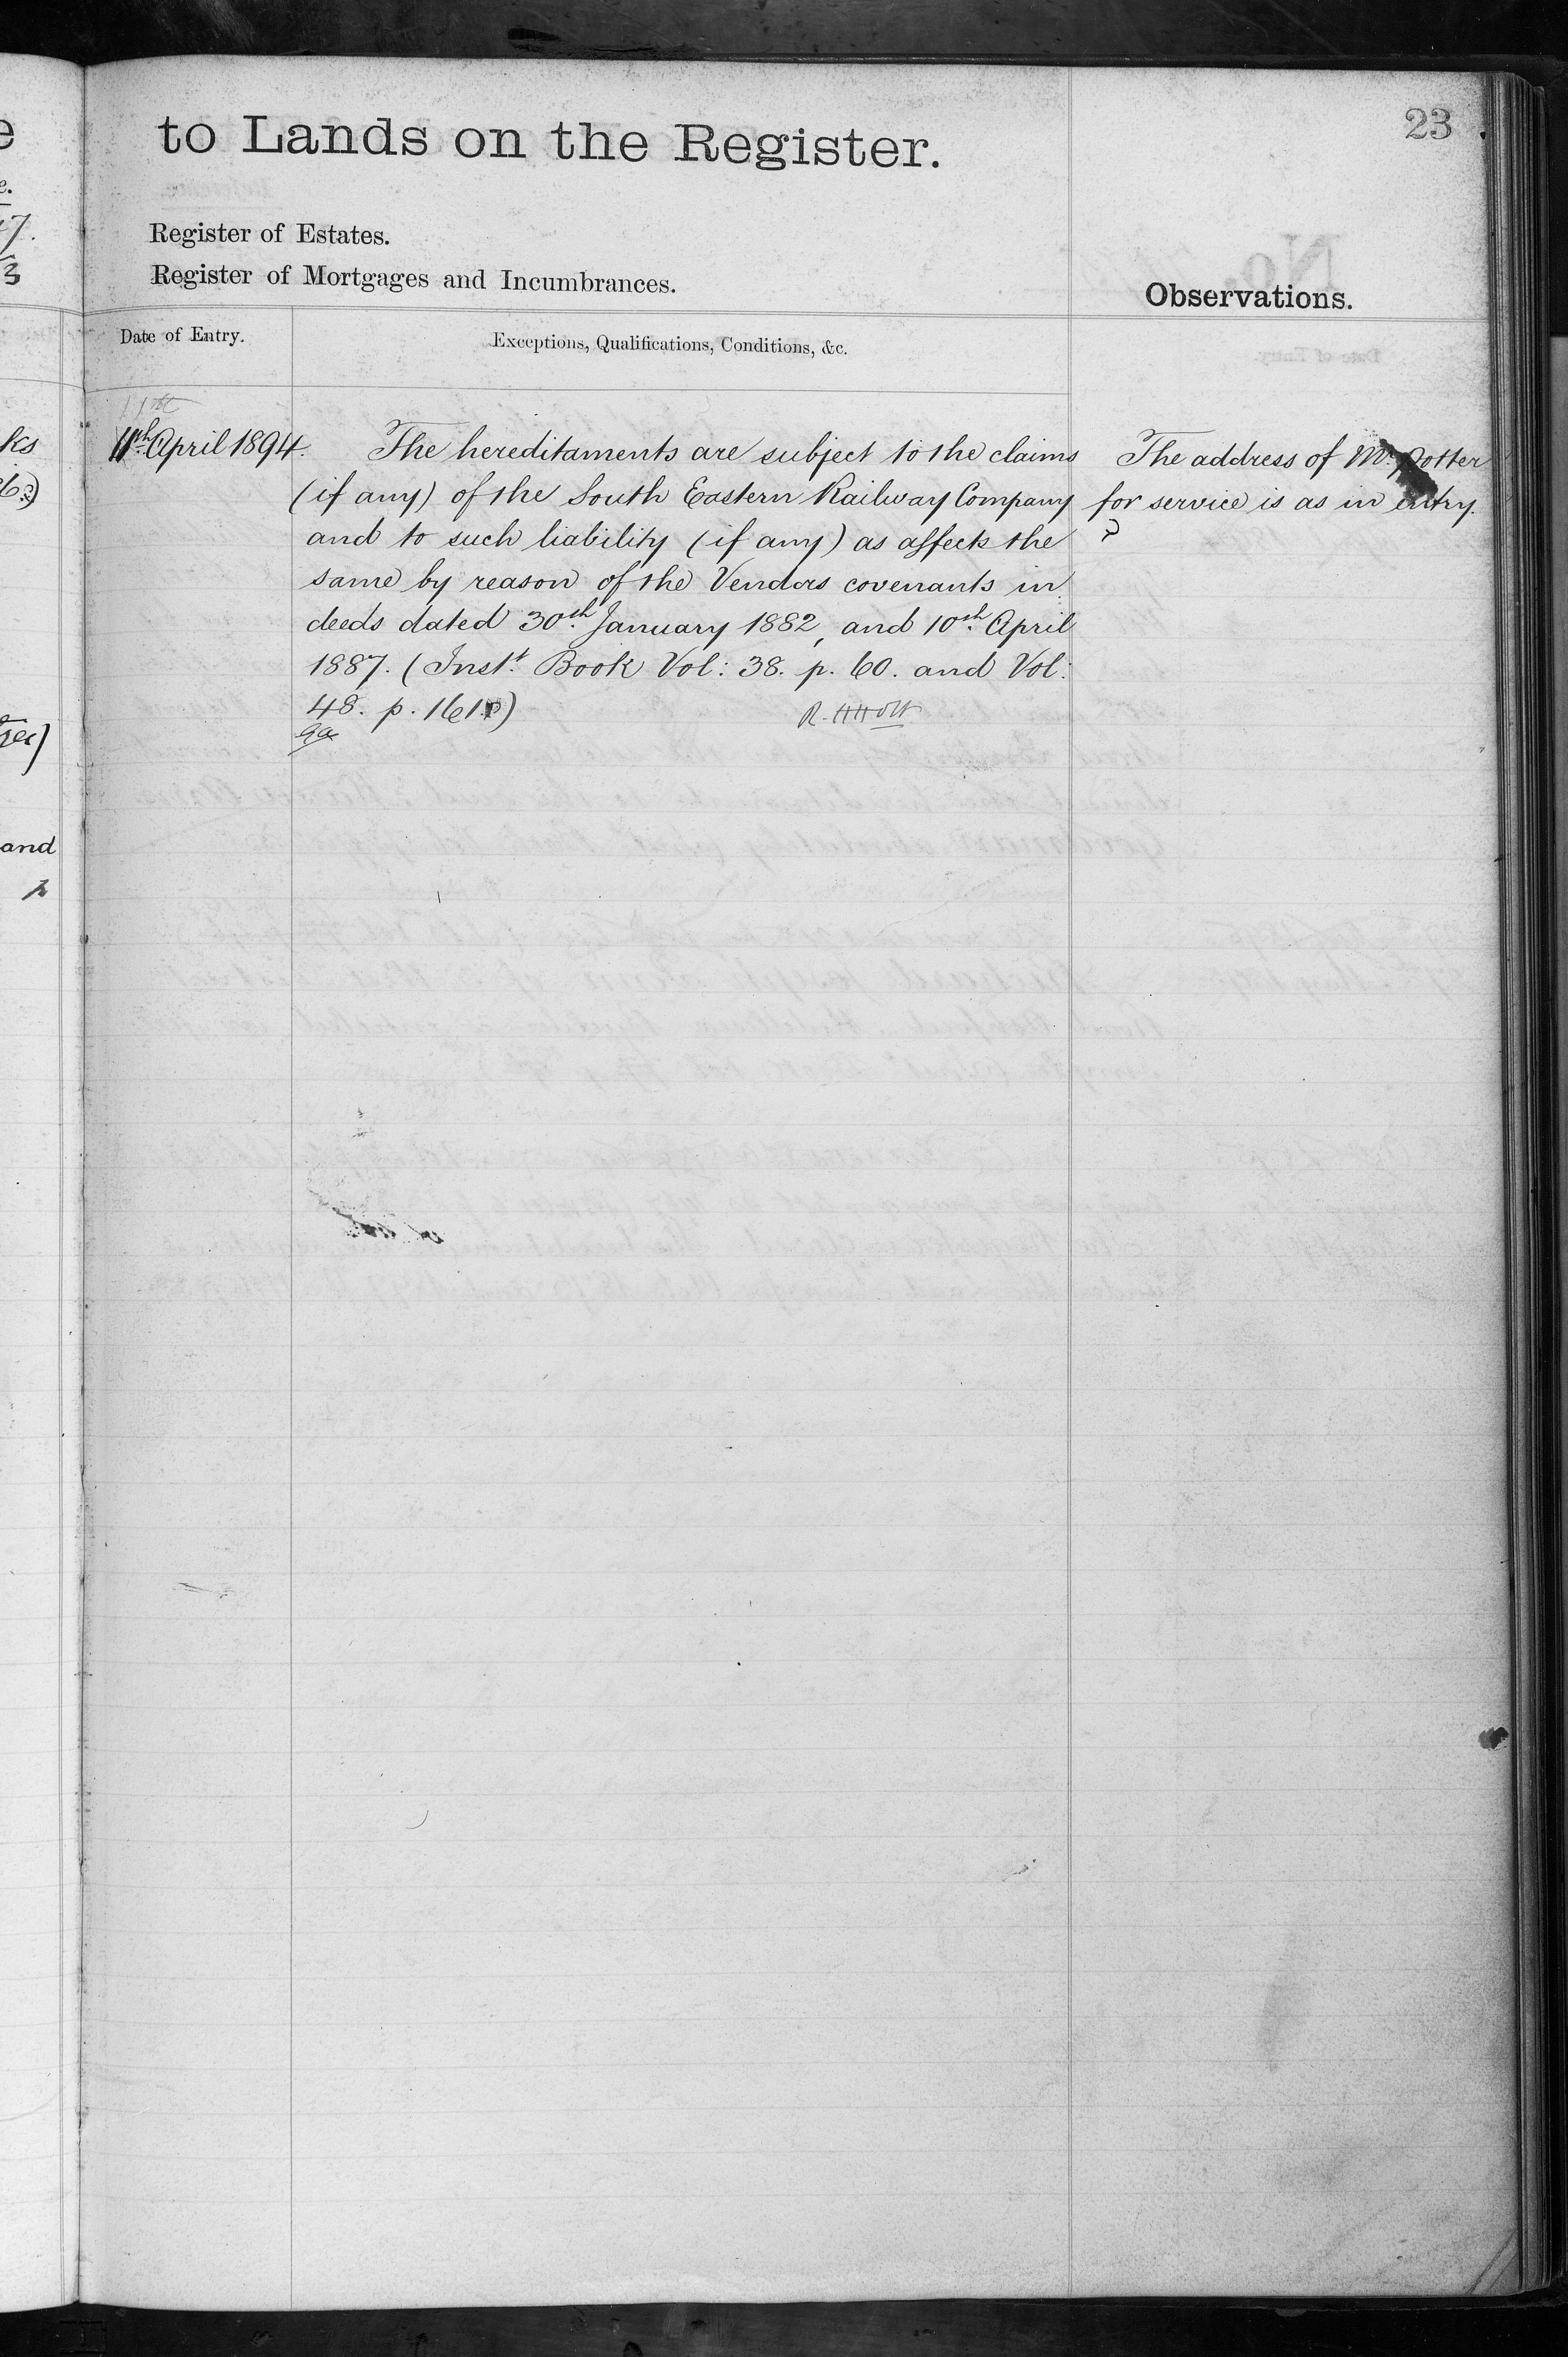 23
to Lands on the Register.
Register of Estates.
Register of Mortgages and Incumbrances.
Observations.
Date of Entry.
Exceptions, Qualifications, Conditions, &c.
11th April 1894.
The hereditaments are subject to the claims
(if any) of the South Eastern Railway Company
and to such liability (if any) as affects the
same by reason of the Vendors covenants in
deeds dated 30th January 1882, and 10th April
1887. (Inst.t Book Vol: 38. p. 60. and Vol:
48. p. 161.)
The address of Mr. Potter
for service is as in entry.
ks
and